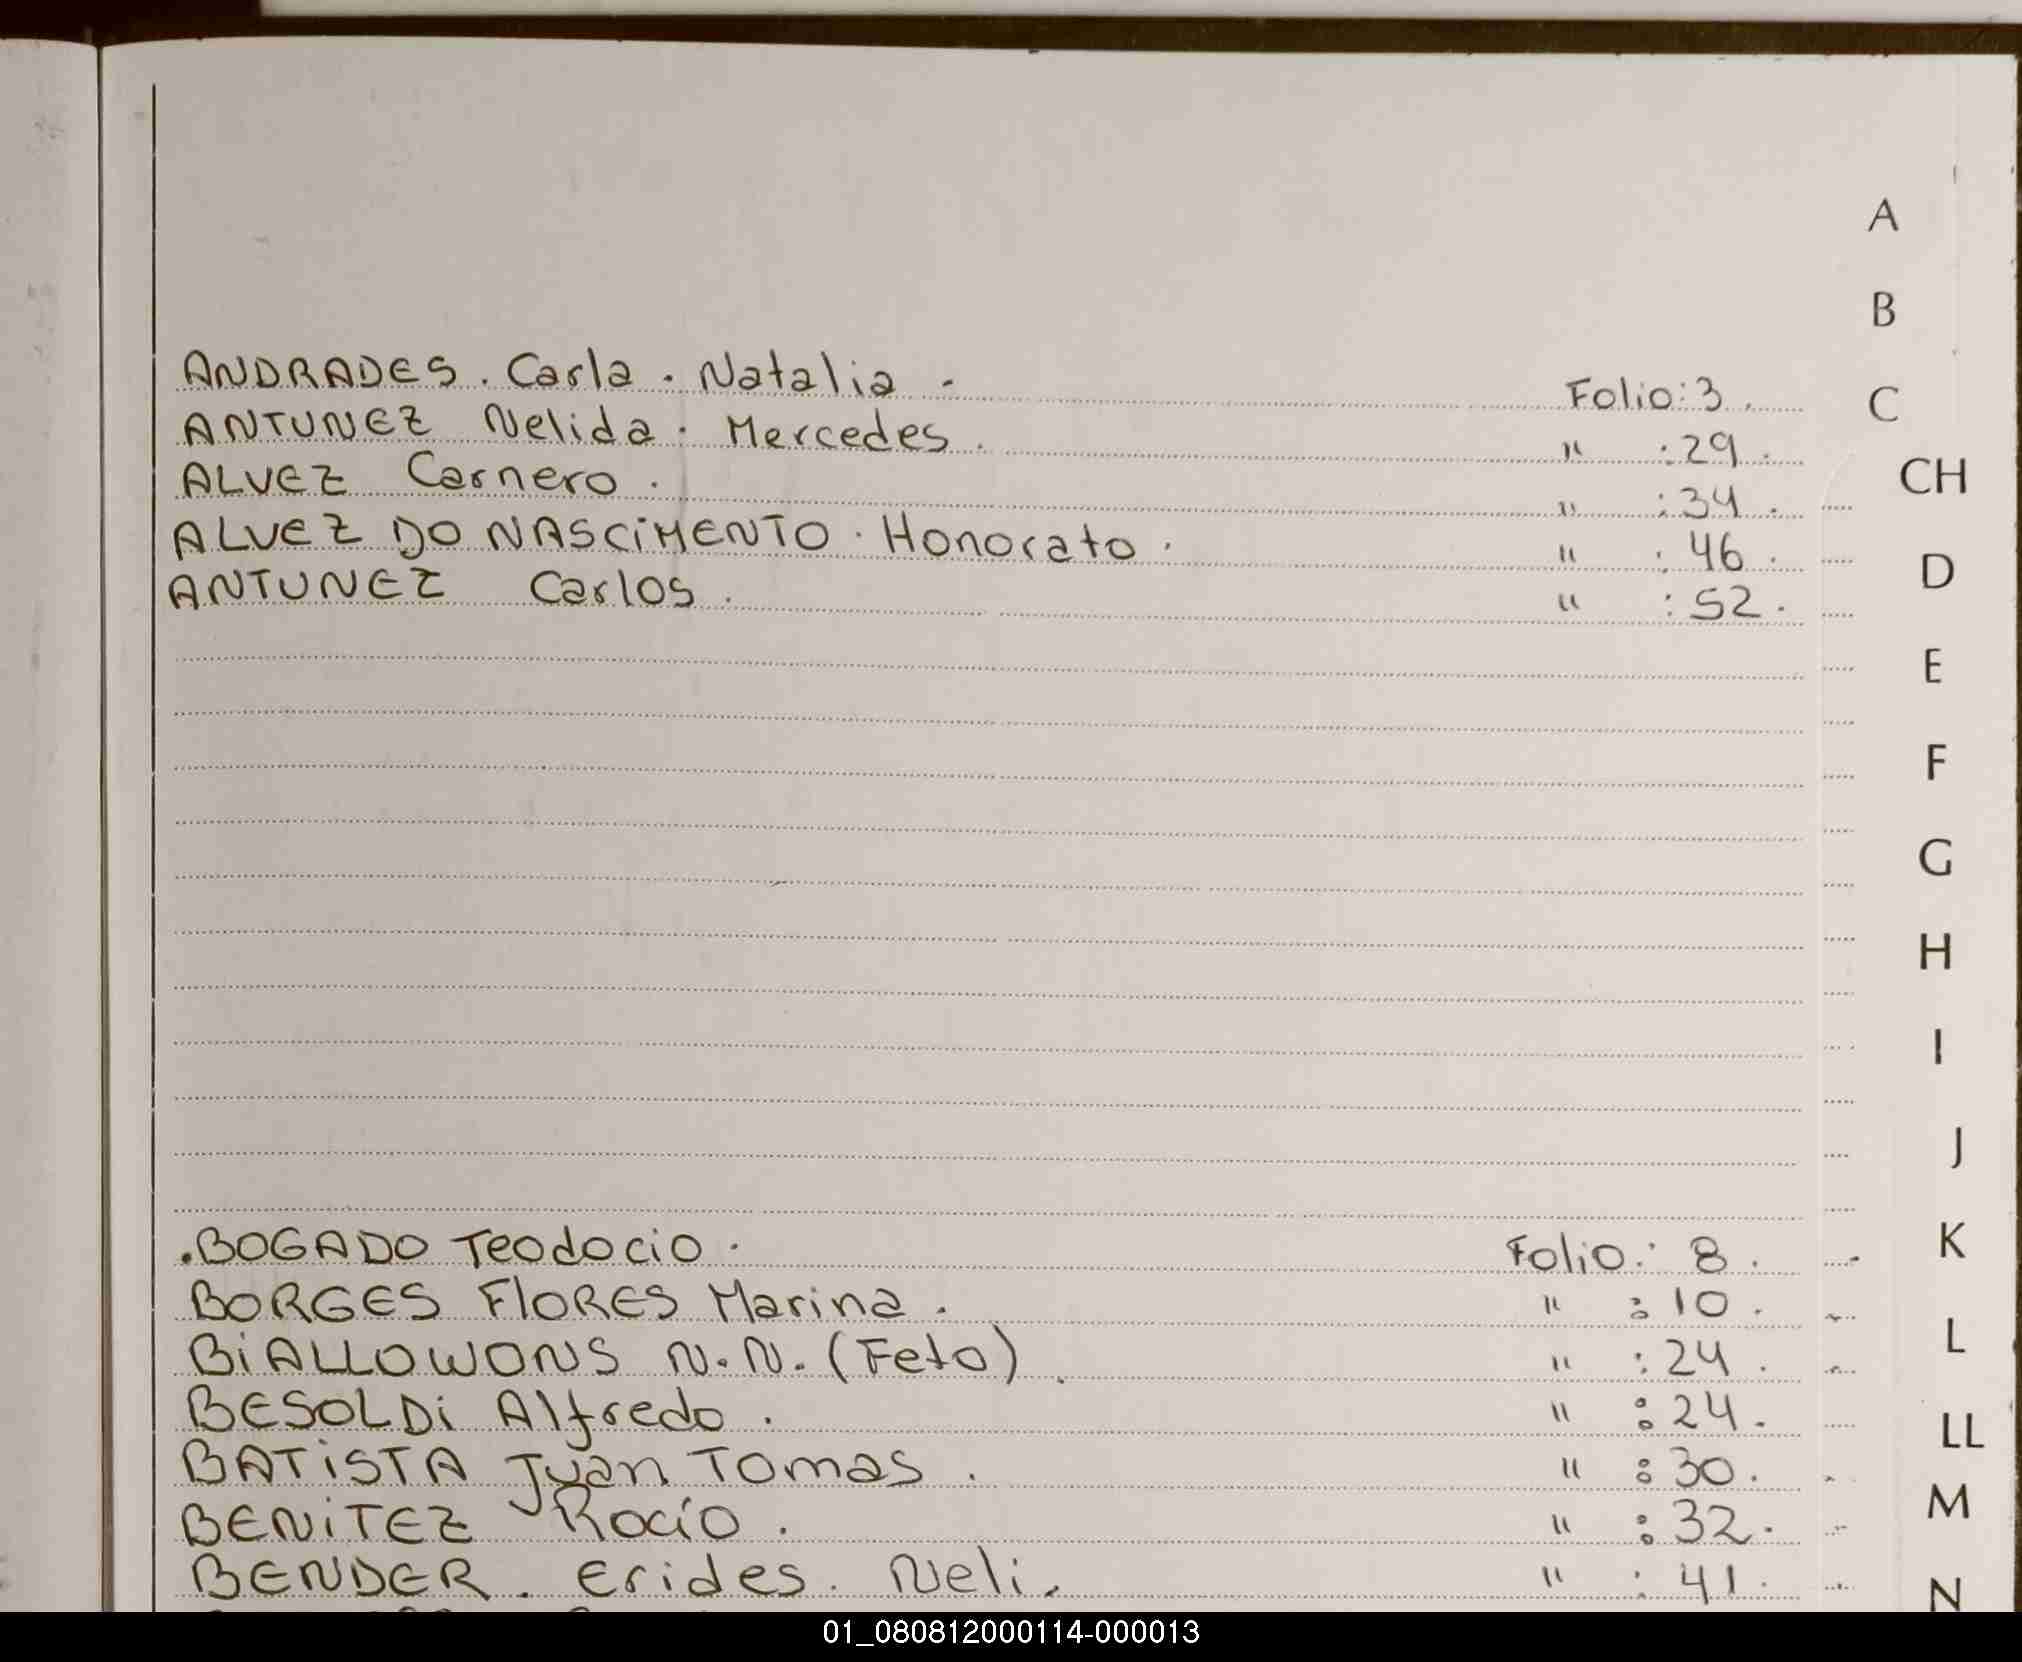 A
B
ANDRADES. Carla. Natalia. Folio: 3.
C
ANTUNEZ Nelida. Mercedes. " : 29.
CH
ALVEZ Carnero. " : 34.
ALVEZ DO NASCIMENTO. Honorato. " : 46.
D
ANTUNEZ Carlos. " : 52.
E
F
G
H
I
J
K
.BOGADO Teodocio. Folio: 8.
BORGES FLORES Marina. " : 10.
L
BiALLOWONS N.N. (Feto). " : 24.
BESOLDi Alfredo. " : 24.
LL
BATiSTA Juan Tomas. " : 30.
M
BENiTEZ Rocío. " : 32.
BENDER. Erides. Neli. " : 41.
N
01_080812000114-000013